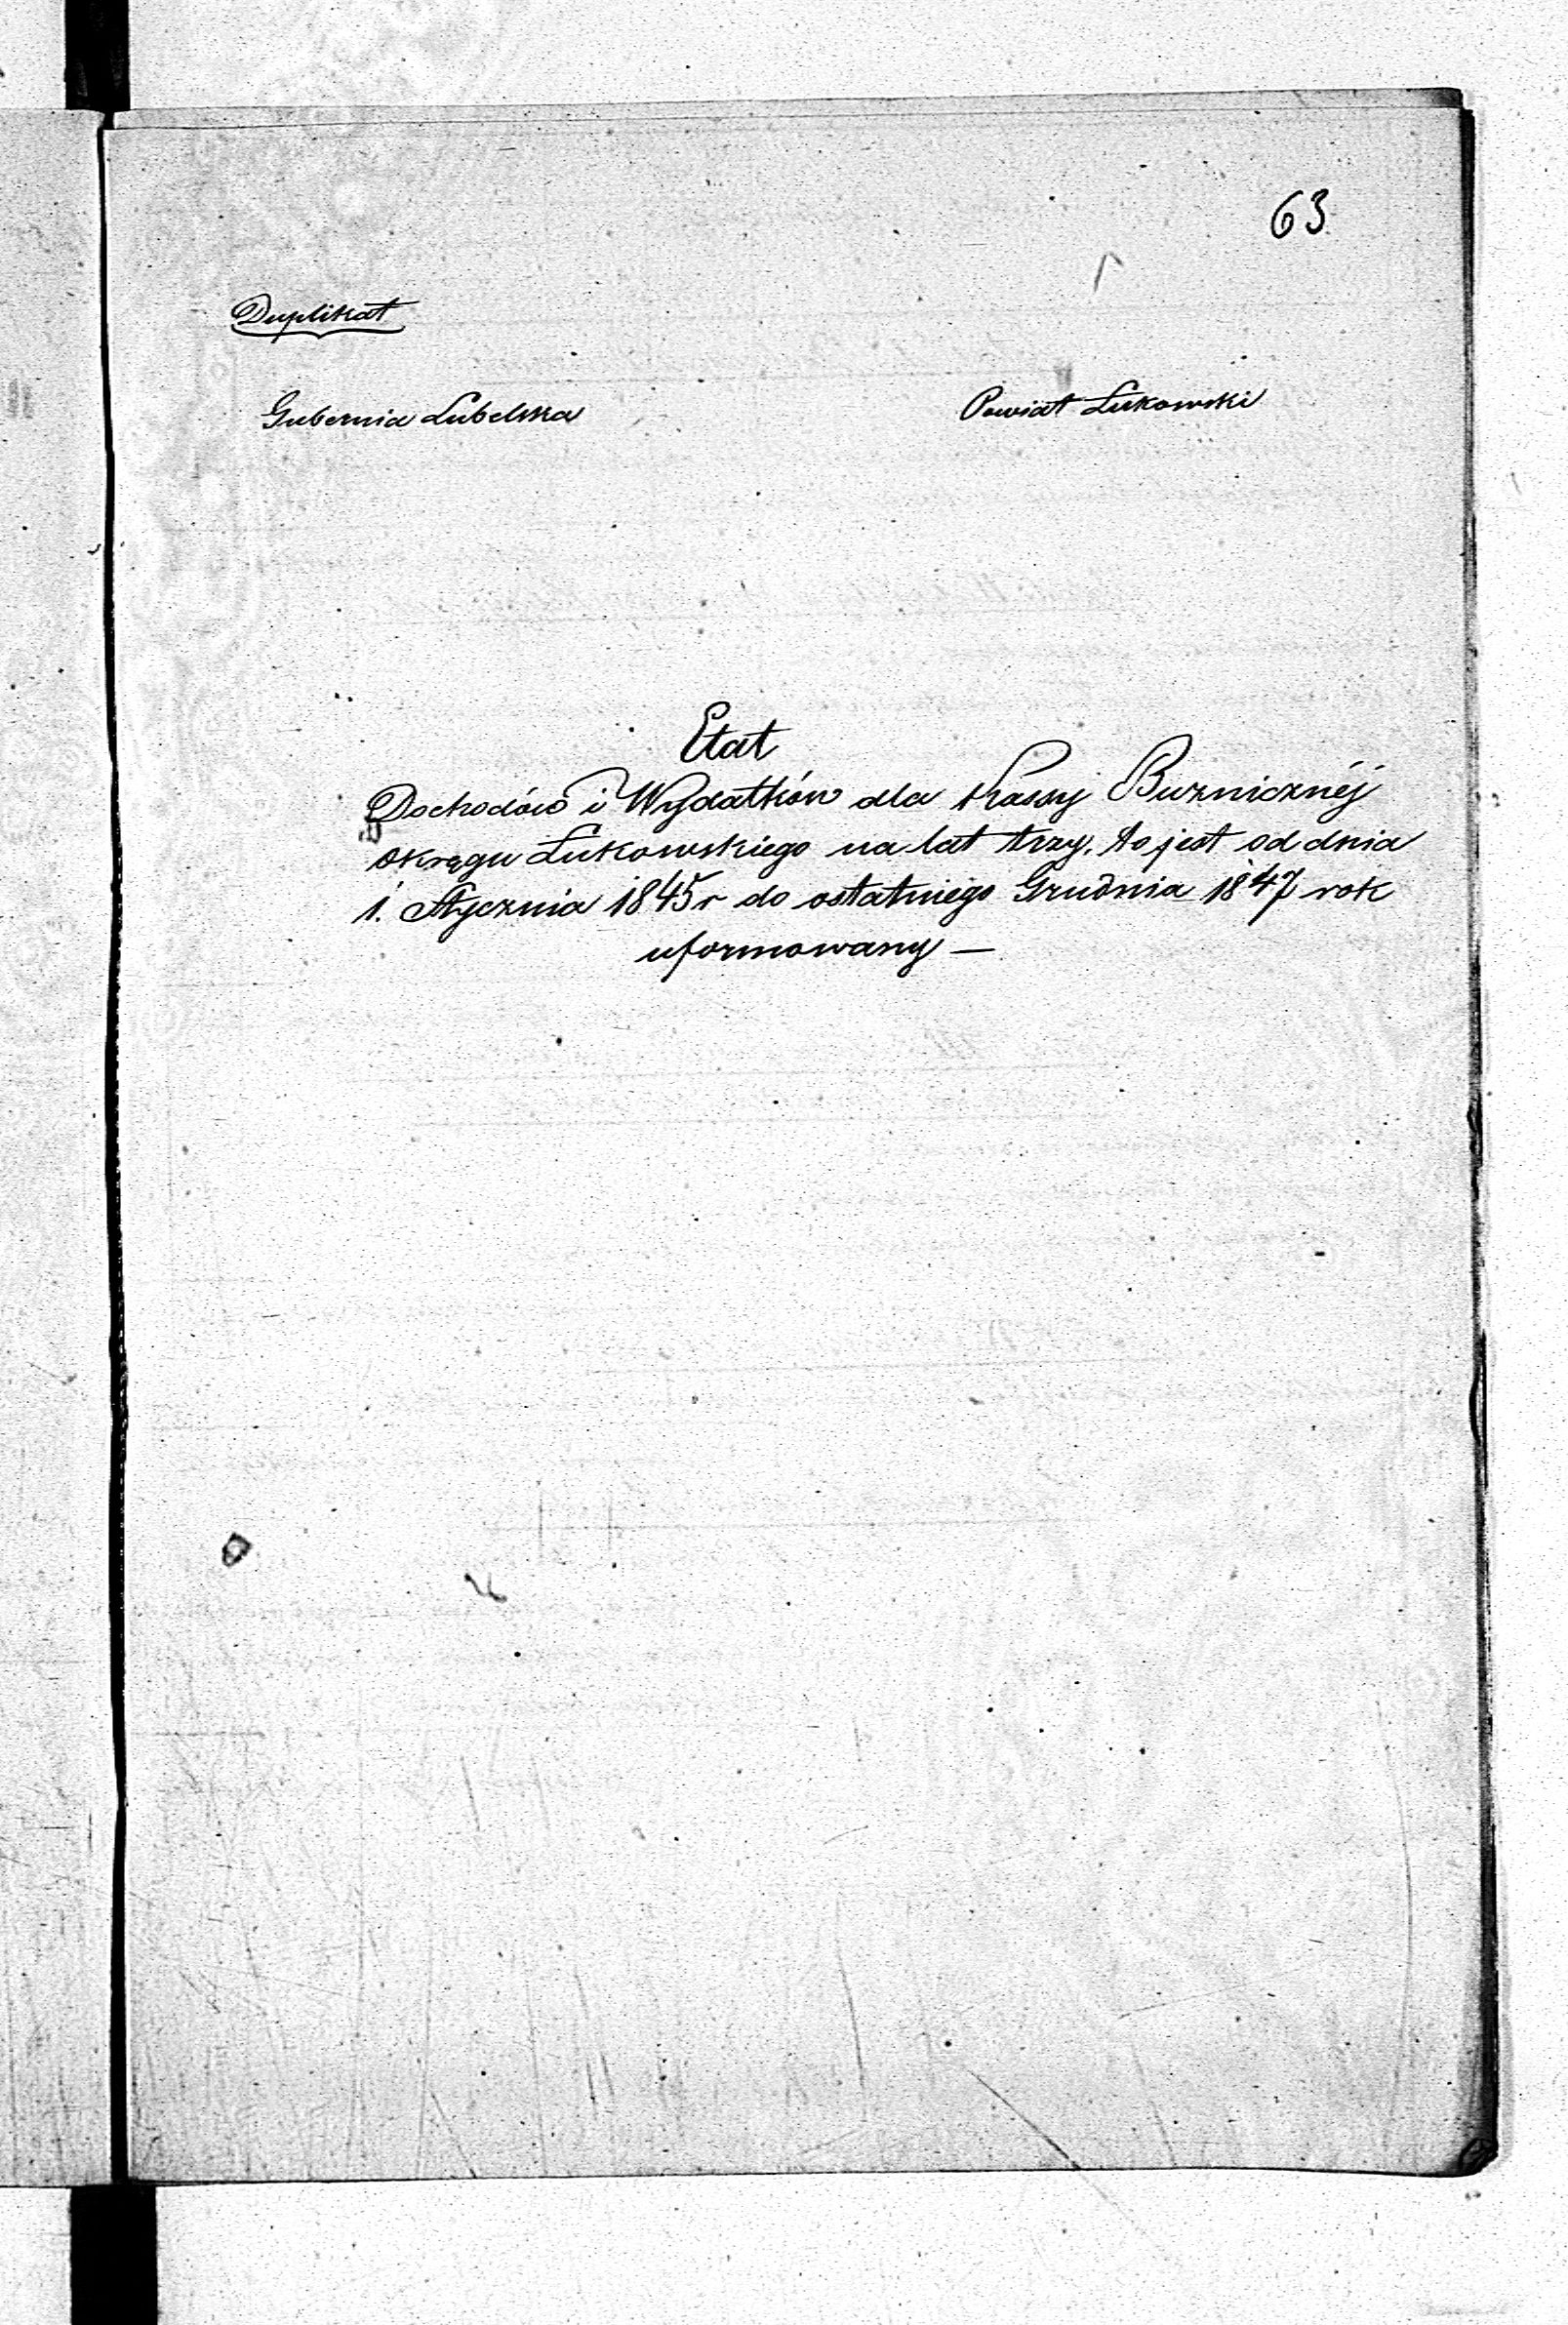 63
Duplikat
Gubernia Lubelska
Powiat Łukowski
Etat
Dochodów i Wydatków dla Kassy Buznicznéj
okręgu Łukowskiego na lat trzy, to jest od dnia
1. Stycznia 1845 r do ostatniego Grudnia 1847 rok
uformowany —